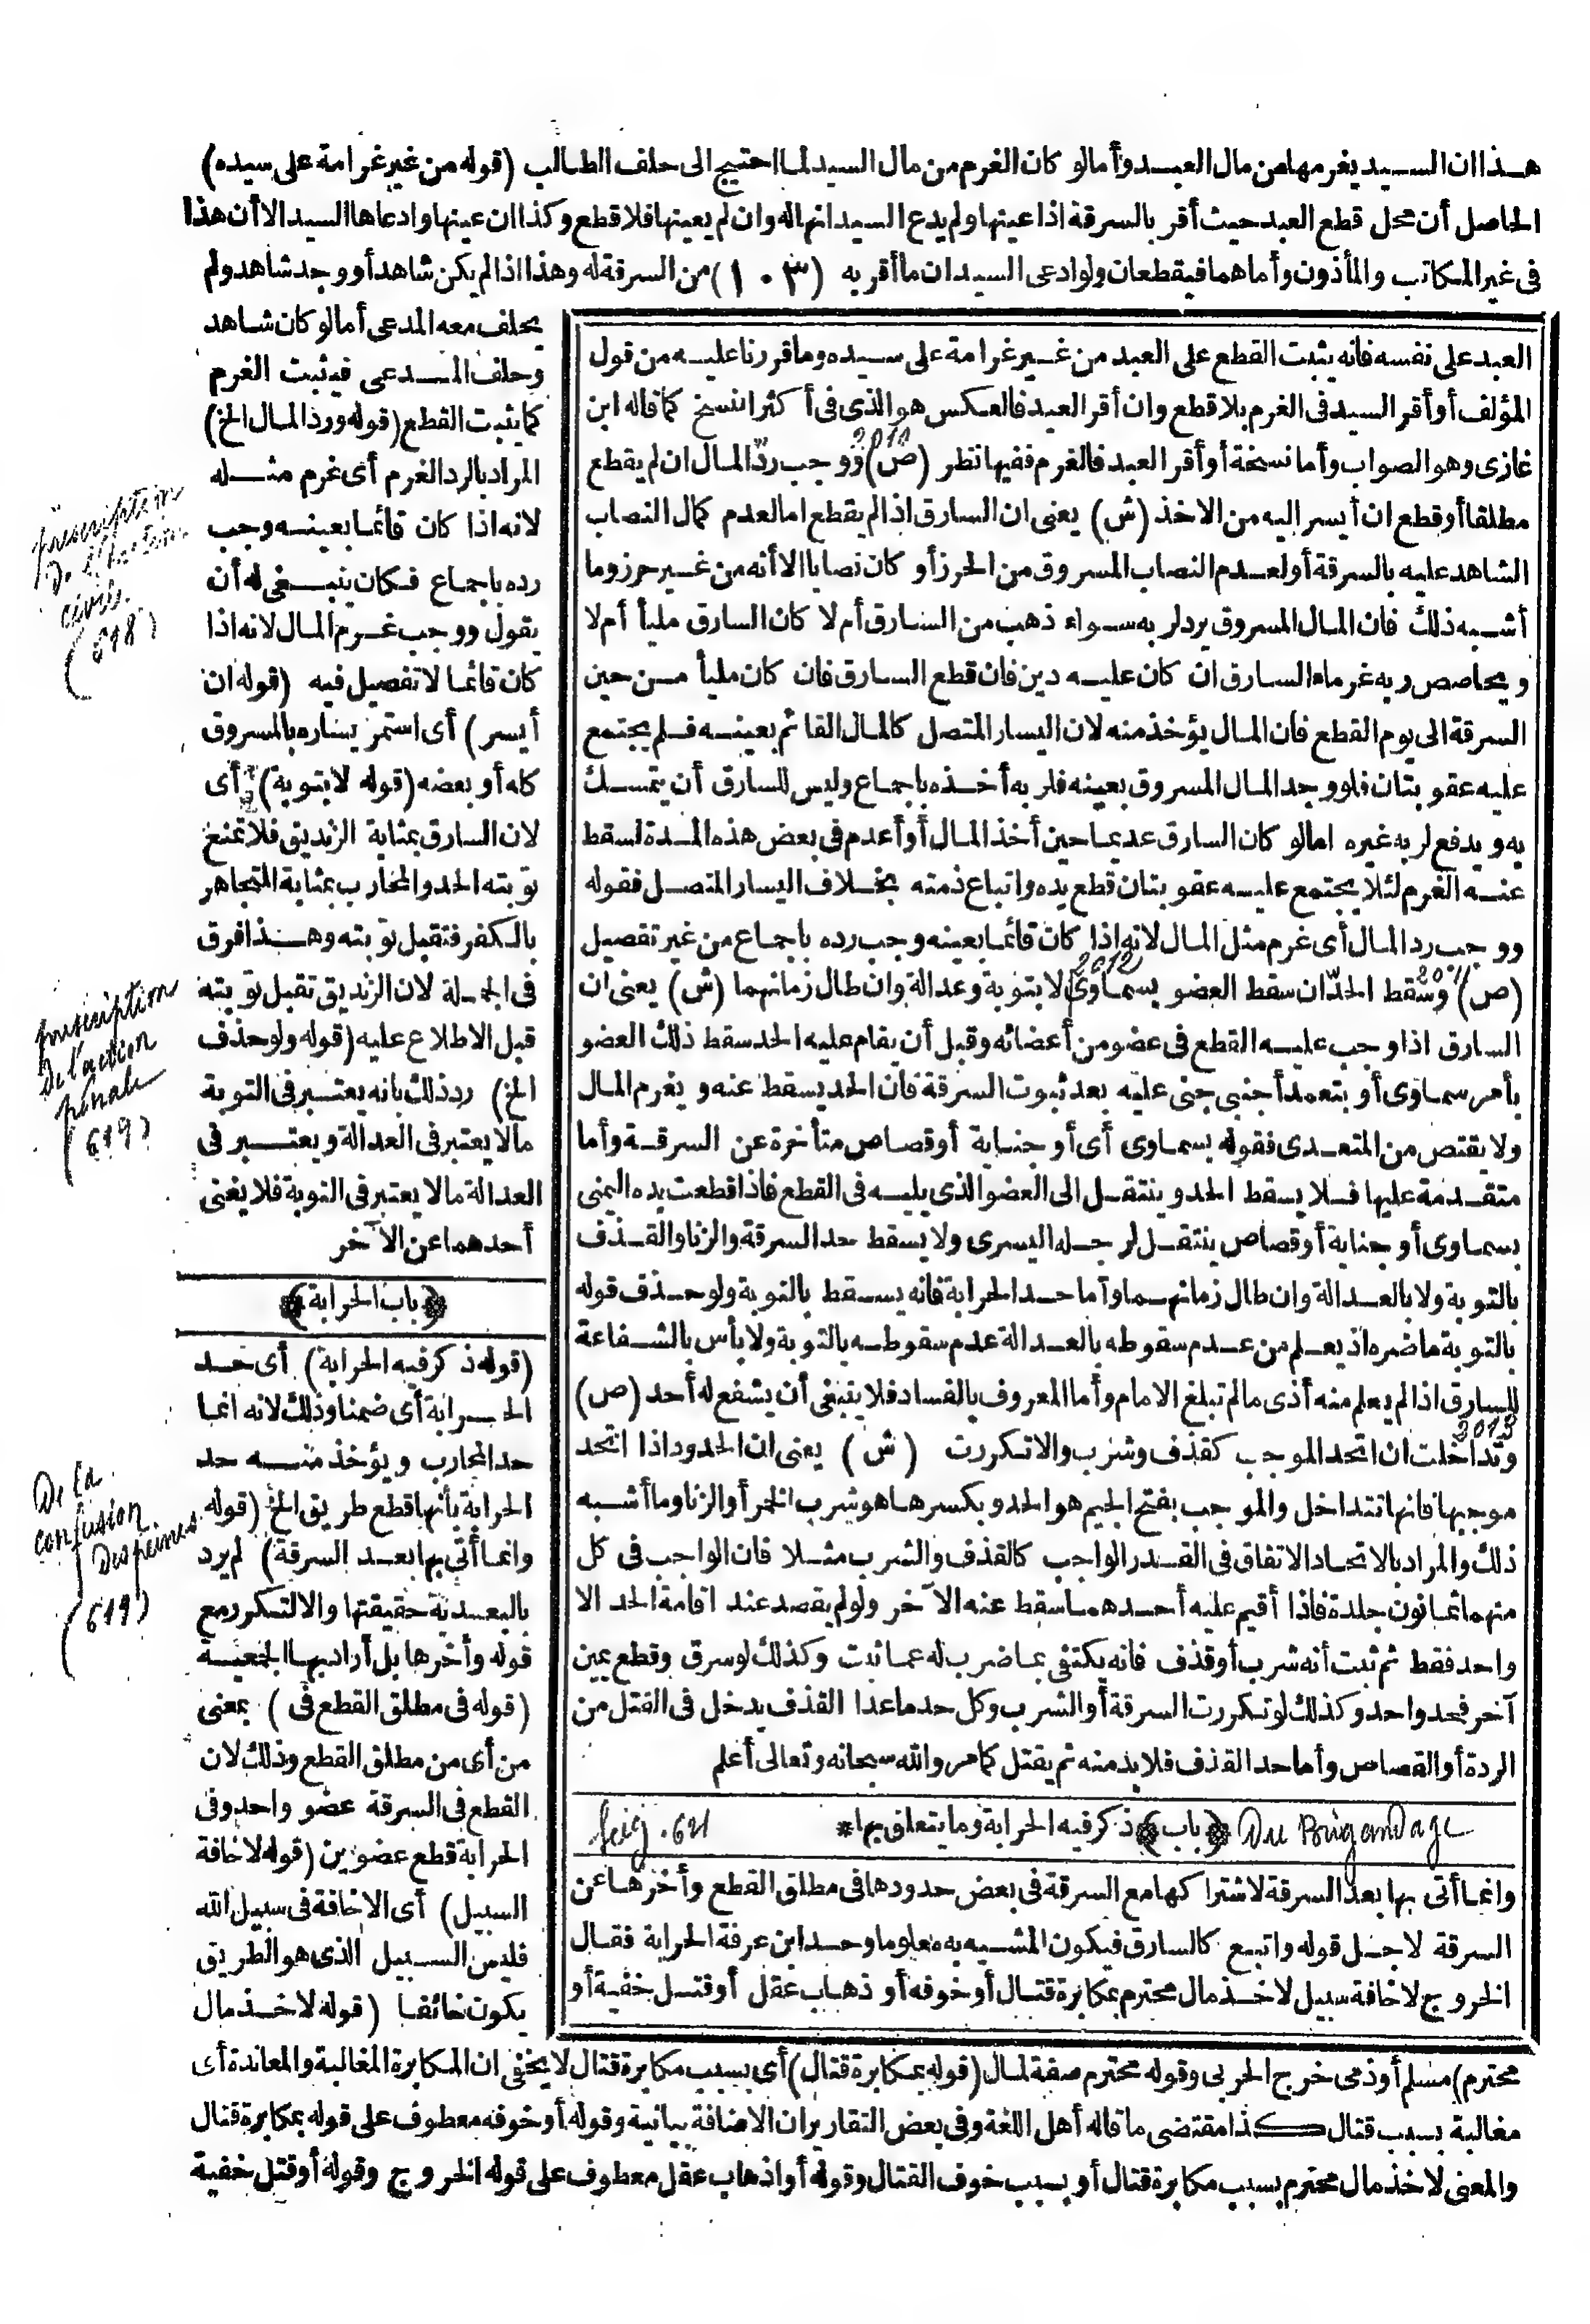 هذا ان السيد يغرمها من مال العبد وأما لو كان الغرم من مال السيد لما احتيج الى حلف الطالب (قوله من غير غرامة على سيده)
الحاصل أن محل قطع العبد حيث أقر بالسرقة اذا عينها ولم يدع السيد انها له وان لم يعينها فلا قطع وكذا ان عينها وادعاها السيد الا أن هذا
فى غير المكاتب والمأذون وأما هما فيقطعان ولو ادعى السيد ان ما أقر به (١٠٣) من السرقة له وهذا اذا لم يكن شاهد أو وجد شاهد ولم
العبد على نفسه فانه يثبت القطع على العبد من غير غرامة على سيده وما قررنا عليه من قول
المؤلف أو أقر السيد فى الغرم بلا قطع وان أقر العبد فالعكس هو الذى فى أكثر النسخ كما قاله ابن
غازى وهو الصواب وأما نسخة أو أقر العبد فالغرم ففيها نظر (ص) ووجب ردّ المال ان لم يقطع
2010
مطلقا أو قطع ان أيسر اليه من الاخذ (ش) يعنى ان السارق اذا لم يقطع اما لعدم كمال النصاب
الشاهد عليه بالسرقة أو لعدم النصاب المسروق من الحرز أو كان نصابا الا أنه من غير حرز وما
أشبه ذلك فان المال المسروق يرد لربه سواء ذهب من السارق أم لا كان السارق مليأ أم لا
ويحاصص ربه غرماء السارق ان كان عليه دين فان قطع السارق فان كان مليأ من حين
السرقة الى يوم القطع فان المال يؤخذ منه لان اليسار المتصل كالمال القائم بعينه فلم يجتمع
عليه عقوبتان فلو وجد المال المسروق بعينه فلربه أخذه باجماع وليس للسارق أن يتمسك
به ويدفع لربه غيره امالو كان السارق عديما حين أخذ المال أو أعدم فى بعض هذه المدة لسقط
عنه الغرم لئلا يجتمع عليه عقوبتان قطع يده واتباع ذمته بخلاف اليسار المتصل فقوله
ووجب رد المال أى غرم مثل المال لانه اذا كان قائما بعينه وجب رده باجماع من غير تفصيل
(ص) وسقط الحدّ ان سقط العضو بسماوى لا بتوبة وعدالة وان طال زمانهما (ش) يعنى ان
2011
2012
السارق اذا وجب عليه القطع فى عضو من أعضائه وقبل أن يقام عليه الحد سقط ذلك العضو
بأمر سماوى أو بتعمد أجنبى جنى عليه بعد ثبوت السرقة فان الحد يسقط عنه ويغرم المال
ولا يقتص من المتعدى فقوله بسماوى أى أو جناية أو قصاص متأخرة عن السرقة وأما
متقدمة عليها فلا يسقط الحد وينتقل الى العضو الذى يليه فى القطع فاذا قطعت يده اليمنى
بسماوى أو جناية أو قصاص ينتقل لرجله اليسرى ولا يسقط حد السرقة والزنا والقذف
بالتوبة ولا بالعدالة وان طال زمانهما وأما حد الحرابة فانه يسقط بالتوبة ولو حذف قوله
بالتوبة ما ضره اذ يعلم من عدم سقوطه بالعدالة عدم سقوطه بالتوبة ولا بأس بالشفاعة
للسارق اذا لم يعلم منه أذى ما لم تبلغ الامام وأما المعروف بالفساد فلا ينبغى أن يشفع له أحد (ص)
2013
وتداخلت ان اتحد الموجب كقذف وشرب والاتكررت (ش) يعنى ان الحدود اذا اتحد
موجبها فانها تتداخل والموجب بفتح الجيم هو الحد وبكسرها هو شرب الخمر أو الزنا وما أشبه
ذلك والمراد بالاتحاد الاتفاق فى القدر الواجب كالقذف والشرب مثلا فان الواجب فى كل
منهما ثمانون جلدة فاذا أقيم عليه أحدهما سقط عنه الآخر ولو لم يقصد عند اقامة الحد الا
واحد فقط ثم ثبت أنه شرب أو قذف فانه يكتفى بما ضرب له عما ثبت وكذلك لو سرق وقطع يمين
آخر فحد واحد وكذلك لو تكررت السرقة أو الشرب وكل حد ما عدا القذف يدخل فى القتل من
الردة أو القصاص وأما حد القذف فلا بد منه ثم يقتل كما مر والله سبحانه وتعالى أعلم
Du Brigandage ﴿باب﴾ ذكر فيه الحرابة وما يتعلق بها* Seig. 621
وانما أتى بها بعد السرقة لاشتراكها مع السرقة فى بعض حدودها فى مطلق القطع وأخرها عن
السرقة لاجل قوله واتبع كالسارق فيكون المشبه به معلوما وحد ابن عرفة الحرابة فقال
الخروج لاخافة سبيل لاخذ مال محترم بمكابرة قتال أو خوفه أو ذهاب عقل أو قتل خفية أو
يحلف معه المدعى أما لو كان شاهد
وحلف المدعى فيثبت الغرم
كما يثبت القطع (قوله ورد المال الخ)
المراد بالرد الغرم أى غرم مثله
لانه اذا كان قائما بعينه وجب
رده باجماع فكان ينبغى له أن
يقول ووجب غرم المال لانه اذا
كان قائما لا تفصيل فيه (قوله ان
أيسر) أى استمر يساره بالمسروق
كله أو بعضه (قوله لا بتوبة) أى
لان السارق بمثابة الزنديق فلا تمنع
توبته الحد والمحارب بمثابة المتجاهر
بالكفر فتقبل توبته وهذا فرق
فى الجملة لان الزنديق تقبل توبته
قبل الاطلاع عليه (قوله ولو حذف
الخ) رد ذلك بانه يعتبر فى التوبة
ما لا يعتبر فى العدالة ويعتبر فى
العدالة ما لا يعتبر فى التوبة فلا يغنى
أحدهما عن الآخر
﴿باب الحرابة﴾
(قوله ذكر فيه الحرابة) أى حد
الحرابة أى ضمنا وذلك لانه انما
حد المحارب ويؤخذ منه حد
الحرابة بأنها قطع طريق الخ (قوله
وانما أتى بها بعد السرقة) لم يرد
بالبعدية حقيقتها والا لتكرر مع
قوله وأخرها بل أراد بها الجمعية
(قوله فى مطلق القطع فى) بمعنى
من أى من مطلق القطع وذلك لان
القطع فى السرقة عضو واحد وفى
الحرابة قطع عضوين (قوله لاخافة
السبيل) أى الاخافة فى سبيل الله
فليس السبيل الذى هو الطريق
يكون خائفا (قوله لاخذ مال
محترم) مسلم أو ذمى خرج الحربى وقوله محترم صفة لمال (قوله بمكابرة قتال) أى بسبب مكابرة قتال لا يخفى ان المكابرة المغالبة والمعاندة أى
مغالبة بسبب قتال كذا مقتضى ما قاله أهل اللغة وفى بعض التقارير ان الاضافة بيانية وقوله أو خوفه معطوف على قوله بمكابرة قتال
والمعنى لاخذ مال محترم بسبب مكابرة قتال أو بسبب خوف القتال وقوله أو اذهاب عقل معطوف على قوله الخروج وقوله أو قتل خفية
prescription
De l'action
civile.
(618)
prescription
De l'action
pénale
(619)
De la
confusion
Des peines
(619)